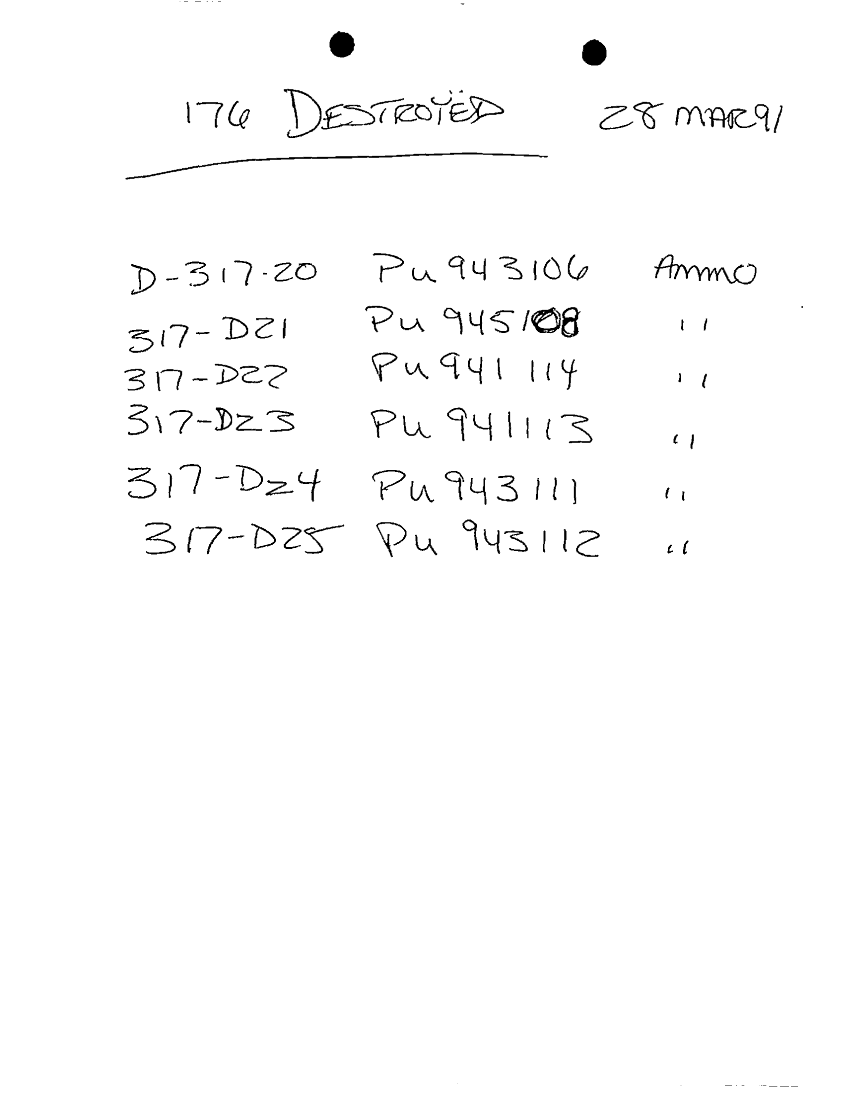 176 DESTROYED 28 MAR 91
D-317-20 Pu 943106 Ammo
317-D21 Pu 945108 ''
317-D22 Pu 941 114 ''
317-D23 Pu 941113 ''
317-D24 Pu 943111 ''
317-D25 Pu 943112 ''